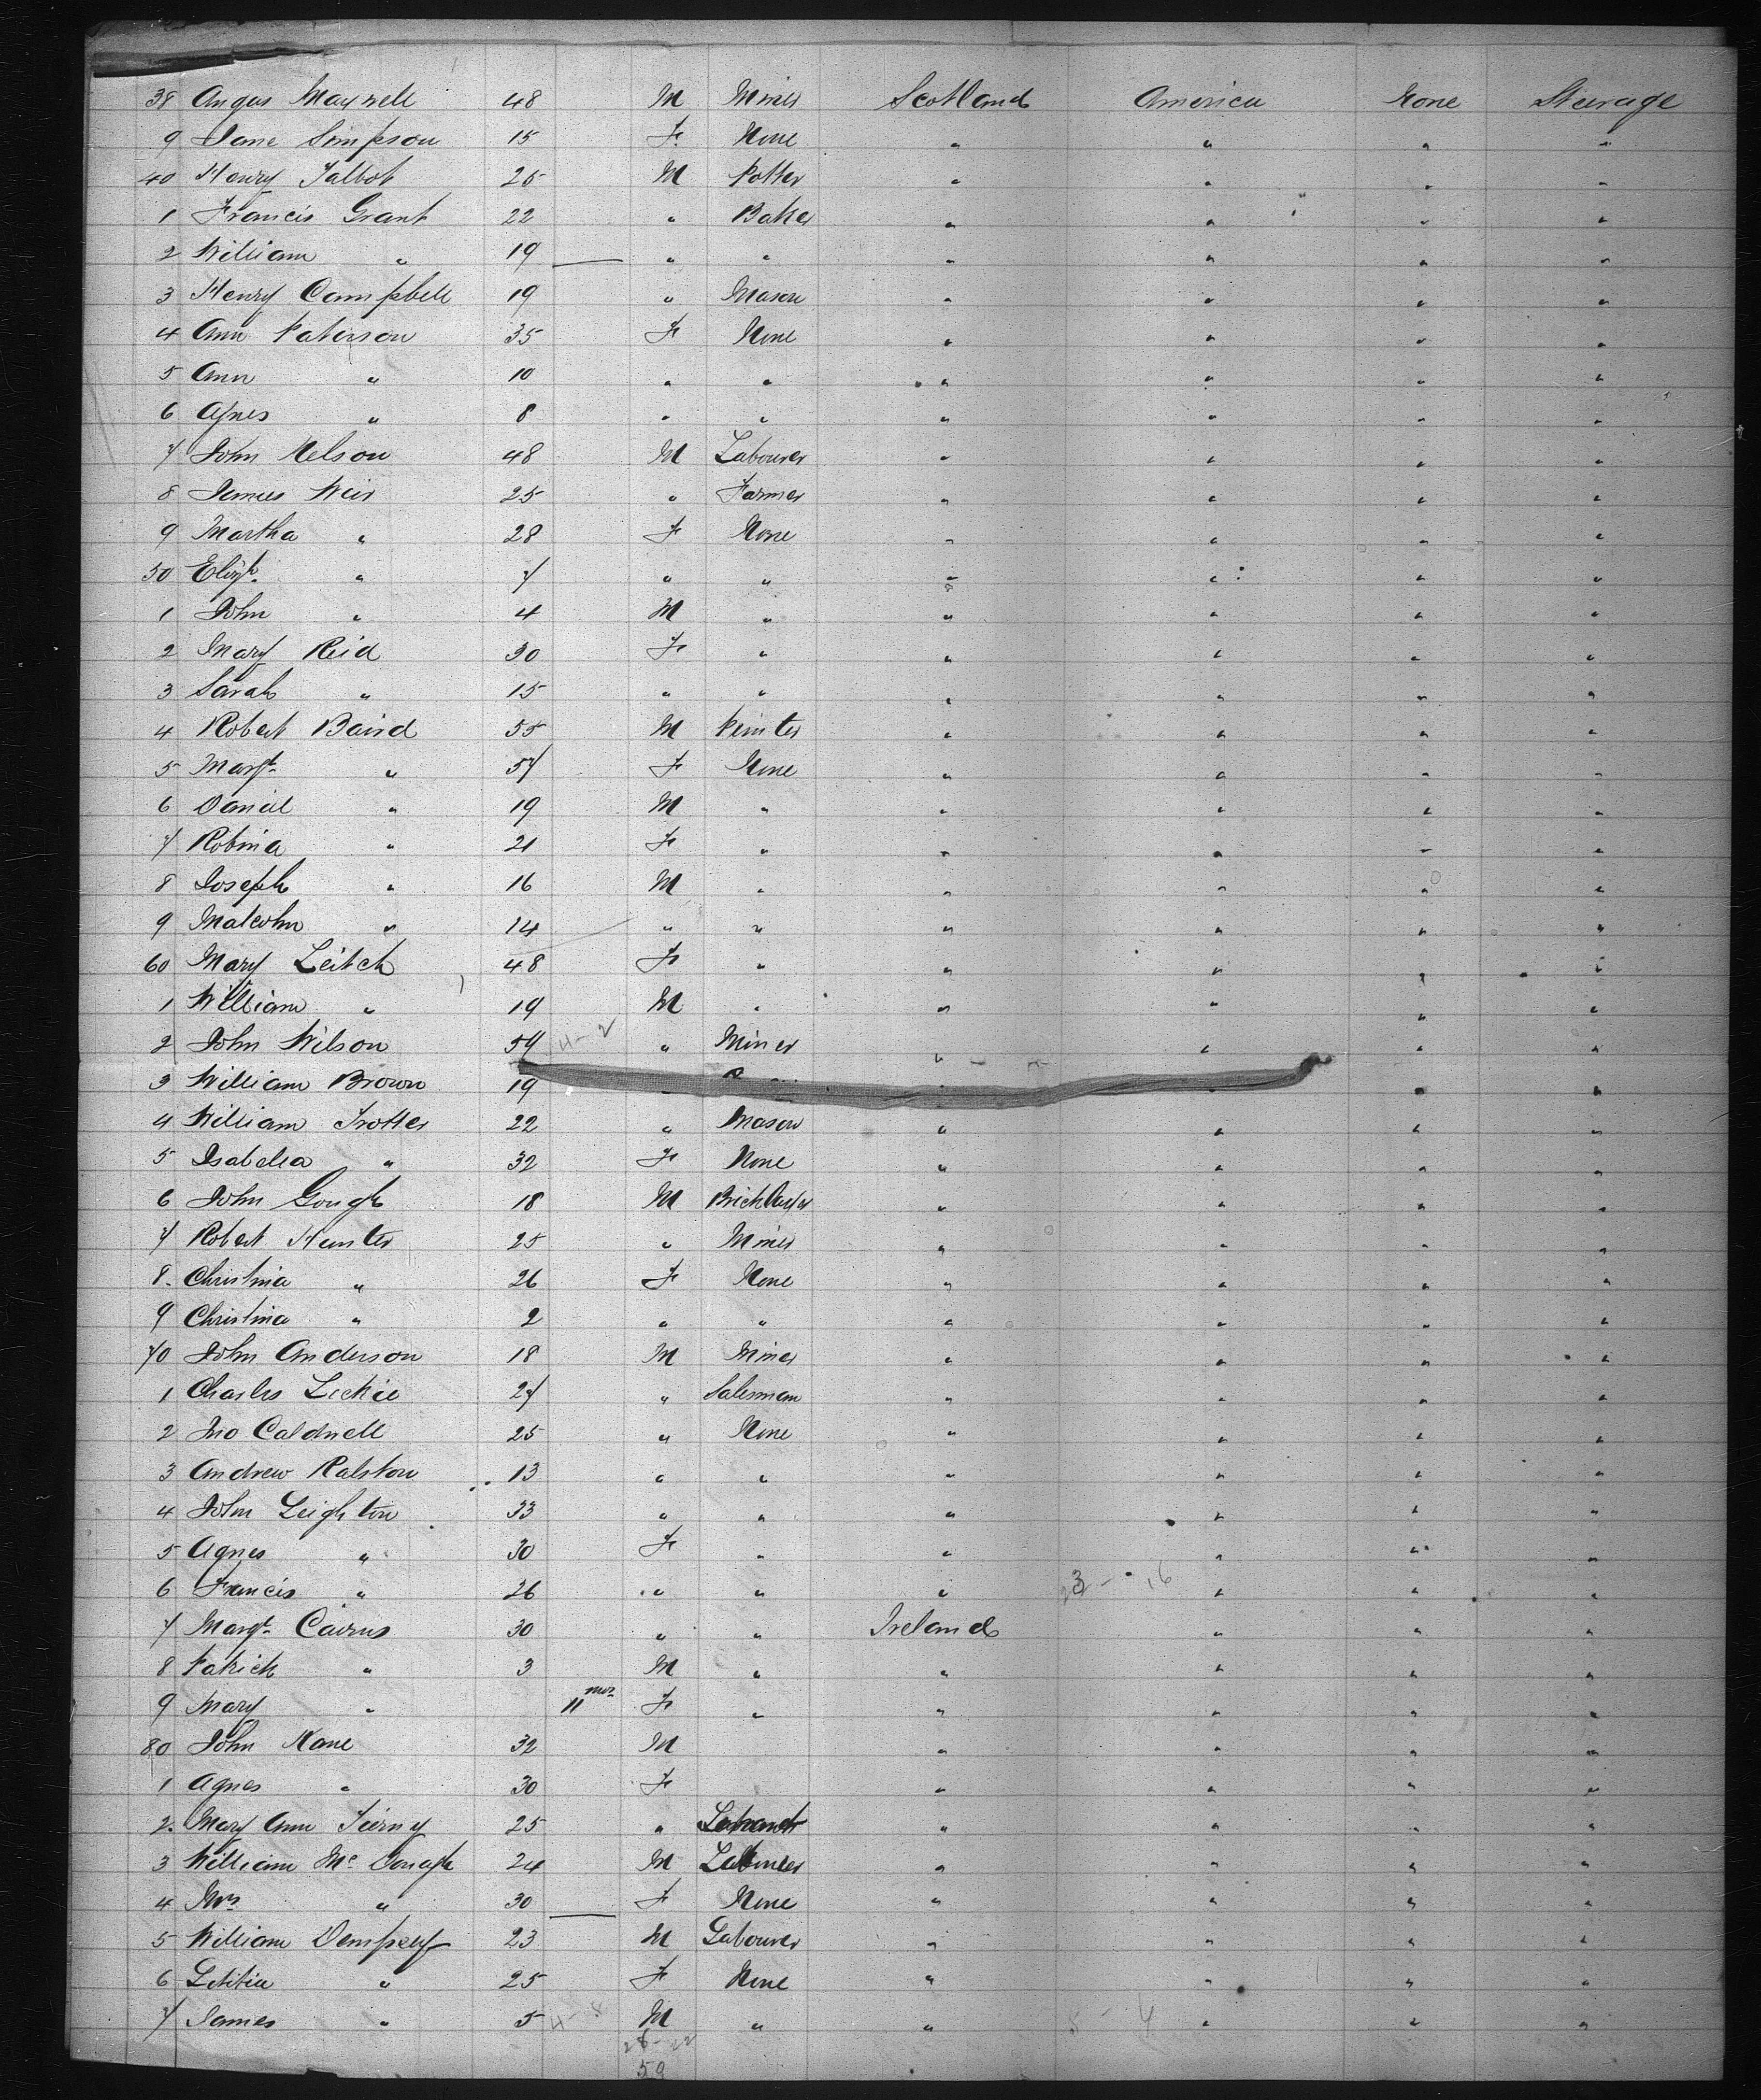 38 Angus Maxwell 48 M Miner Scotland America None Steerage
9 Jane Simpson 15 F. None " " " "
40 Henry Talbot 25 M Potter " " " "
1 Francis Grant 22 " Baker " " " "
2 William " 19 — " " " " " "
3 Henry Campbell 19 " Mason " " " "
4 Ann Paterson 35 F None " " " "
5 Ann " 10 " " " " " "
6 Agnes " 8 " " " " " "
7 John Nelson 48 M Labourer " " " "
8 James Weir 25 " Farmer " " " "
9 Martha " 28 F None " " " "
50 Elizth " 7 " " " " " "
1 John " 4 M " " " " "
2 Mary Reid 30 F " " " " "
3 Sarah " 15 " " " " " "
4 Robert Baird 55 M Printer " " " "
5 Margt " 57 F None " " " "
6 Daniel " 19 M " " " " "
7 Robina " 21 F " " " " "
8 Joseph " 16 M " " " " "
9 Malcolm " 14 " " " " " "
60 Mary Leitch 48 F " " " " "
1 William " 19 M " " " " "
2 John Wilson 54 4-2 " Miner " " " "
3 William Brown 19 " "
4 William Trotter 22 " Mason " " " "
5 Isabella " 32 F None " " " "
6 John Gough 18 M Bricklayer " " " "
7 Robert Hunter 25 " Miner " " " "
8. Christina " 26 F None " " " "
9 Christina " 2 " " " " " "
70 John Anderson 18 M Miner " " " "
1 Charles Leckie 27 " Salesman " " " "
2 Jno Caldwell 25 " None " " " "
3 Andrew Ralston 13 " " " " " "
4 John Leighton 33 " " " " " "
5 Agnes " 30 F " " " " "
6 Francis " 26 " " " 23 - 16 " " "
7 Margt Cairns 30 " " Ireland " " "
8 Patrick " 3 M " " " " "
9 Mary " 11 mos F " " " " "
80 John Kane 32 M " " " "
1 Agnes " 30 F " " " "
2. Mary Ann Tierny 25 " " " " "
3 William Mc Donagh 24 M Labourer " " " "
4 Mrs " 30 F None " " " "
5 William Dempsey 23 M Labourer " " " "
6 Letitia " 25 F None " " " "
7 James " 5 4-8 M " " 5 - 4 " " "
28-22
50